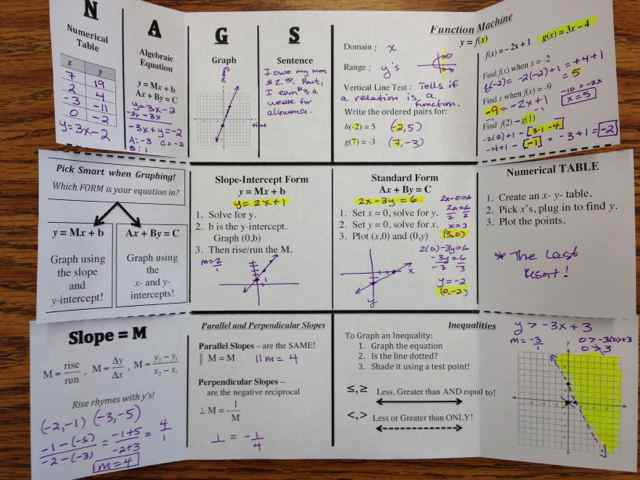 N
Numerical
Table
x y
7 19
2 4
-3 -11
0 -2
y=3x-2
A
Algebraic
Equation
y = Mx + b
Ax + By = C
y=3x-2
-3x -3x
-3x+y=-2
A:-3 C=-2
B:1
G
Graph
S
Sentence
I owe my mom
$2. But,
I earn $3 a
week for
allowance.
Function Machine
y = f(x)
Domain: x
Range: y's
Vertical Line Test: Tells if
a relation is a
function.
Write the ordered pairs for:
h(-2) = 5 (-2,5)
g(7) = -3 (7,-3)
f(x) = -2x + 1 g(x) = 3x - 4
Find f(x) when x = -2
f(-2)=-2(-2)+1=+4+1
=5
Find x when f(x) = -9
-9=-2x+1
-10=-2x
x=5
Find f(2) - g(1)
-2(2)+1 - 3·1-4
-4+1 - [-1] = -3+1=-2
Pick Smart when Graphing!
Which FORM is your equation in?
y = Mx + b
Graph using
the slope
and
y-intercept!
Ax + By = C
Graph
using the
x- and y-
intercepts!
Slope-Intercept Form
y = Mx + b
y=2x+1
1. Solve for y.
2. b is the y-intercept.
Graph (0,b)
3. Then rise/run the M.
m=2/1
Standard Form
Ax + By = C
2x-3y=6
1. Set x = 0, solve for y.
2. Set y = 0, solve for x.
3. Plot (x,0) and (0,y)
2x-0=6
2x=6
2 2
x=3
(3,0)
2(0)-3y=6
-3y=6
-3 -3
y=-2
(0,-2)
x
y
Numerical TABLE
1. Create an x- y- table.
2. Pick x's, plug in to find y.
3. Plot the points.
* The Last
Resort!
Slope = M
M = rise/run, M = Δy/Δx, M = y₂ − y₁/x₂ − x₁
Rise rhymes with y's!
(-2,-1) (-3,-5)
-1-(-5)/-2-(-3) = -1+5/-2+3 = 4/1
m=4
Parallel and Perpendicular Slopes
Parallel Slopes – are the SAME!
|| M = M || m = 4
Perpendicular Slopes –
are the negative reciprocal
⊥ M = - 1/M
⊥ = -1/4
Inequalities
To Graph an Inequality:
1. Graph the equation
2. Is the line dotted?
3. Shade it using a test point!
≤,≥ Less, Greater than AND equal to!
<,> Less or Greater than ONLY!
y > -3x + 3
m = -3/1
0 > -3(0)+3
0 > 3